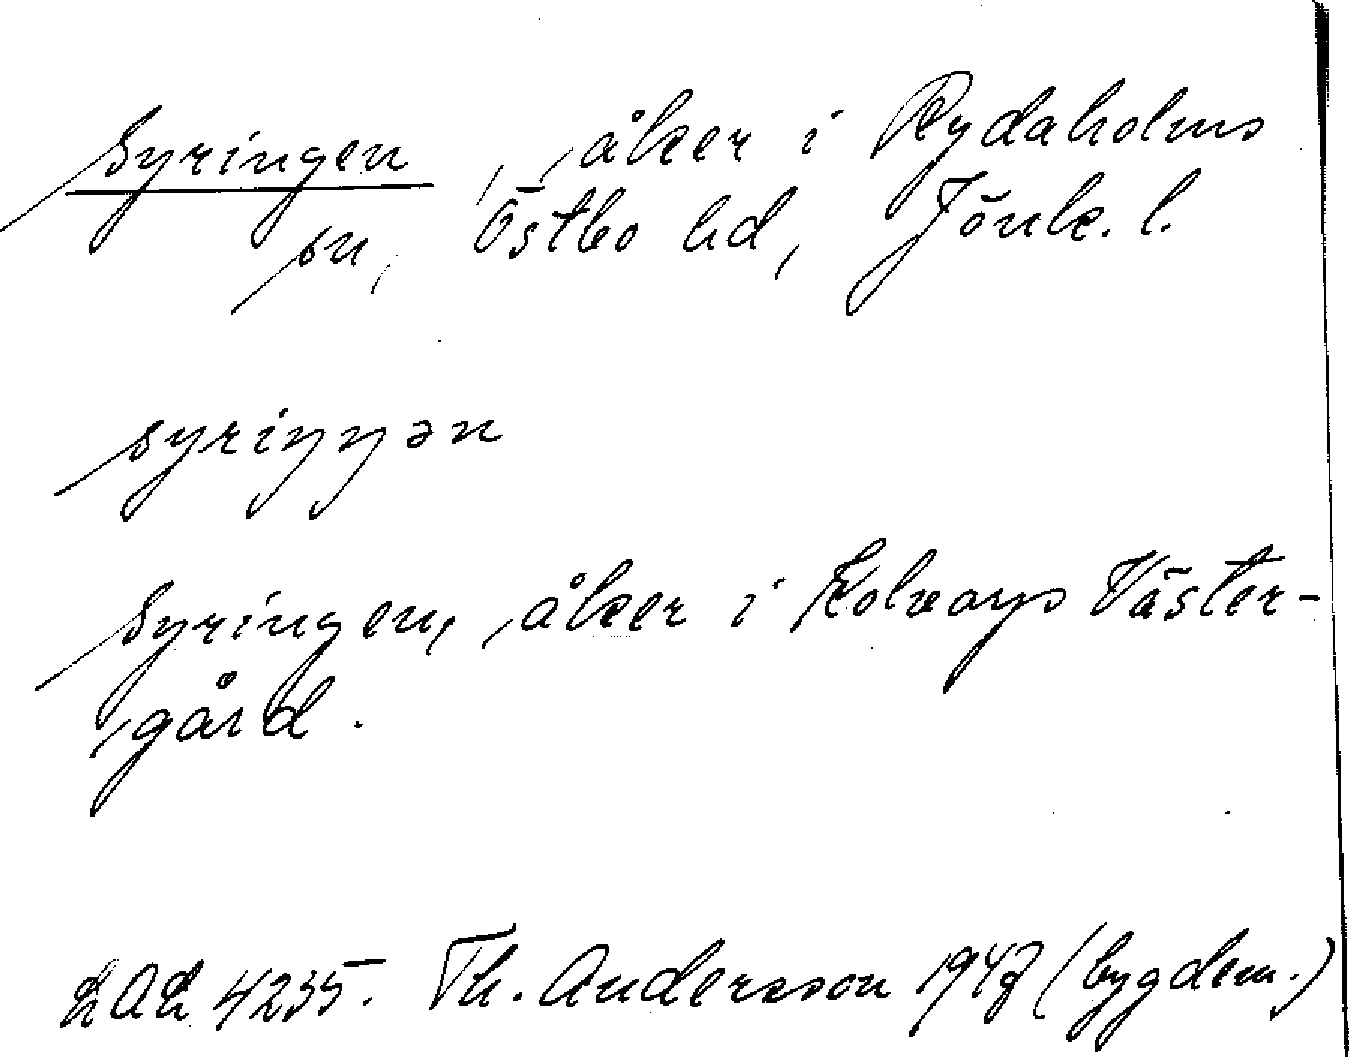 Syringen, åker i Rydaholms
sn, Östbo hd, Jönk. l.
syriŋŋən
Syringen, åker i Kolvarps Väster-
gård.
LAL 4235. Th. Andersson 1947 (bygdem.)